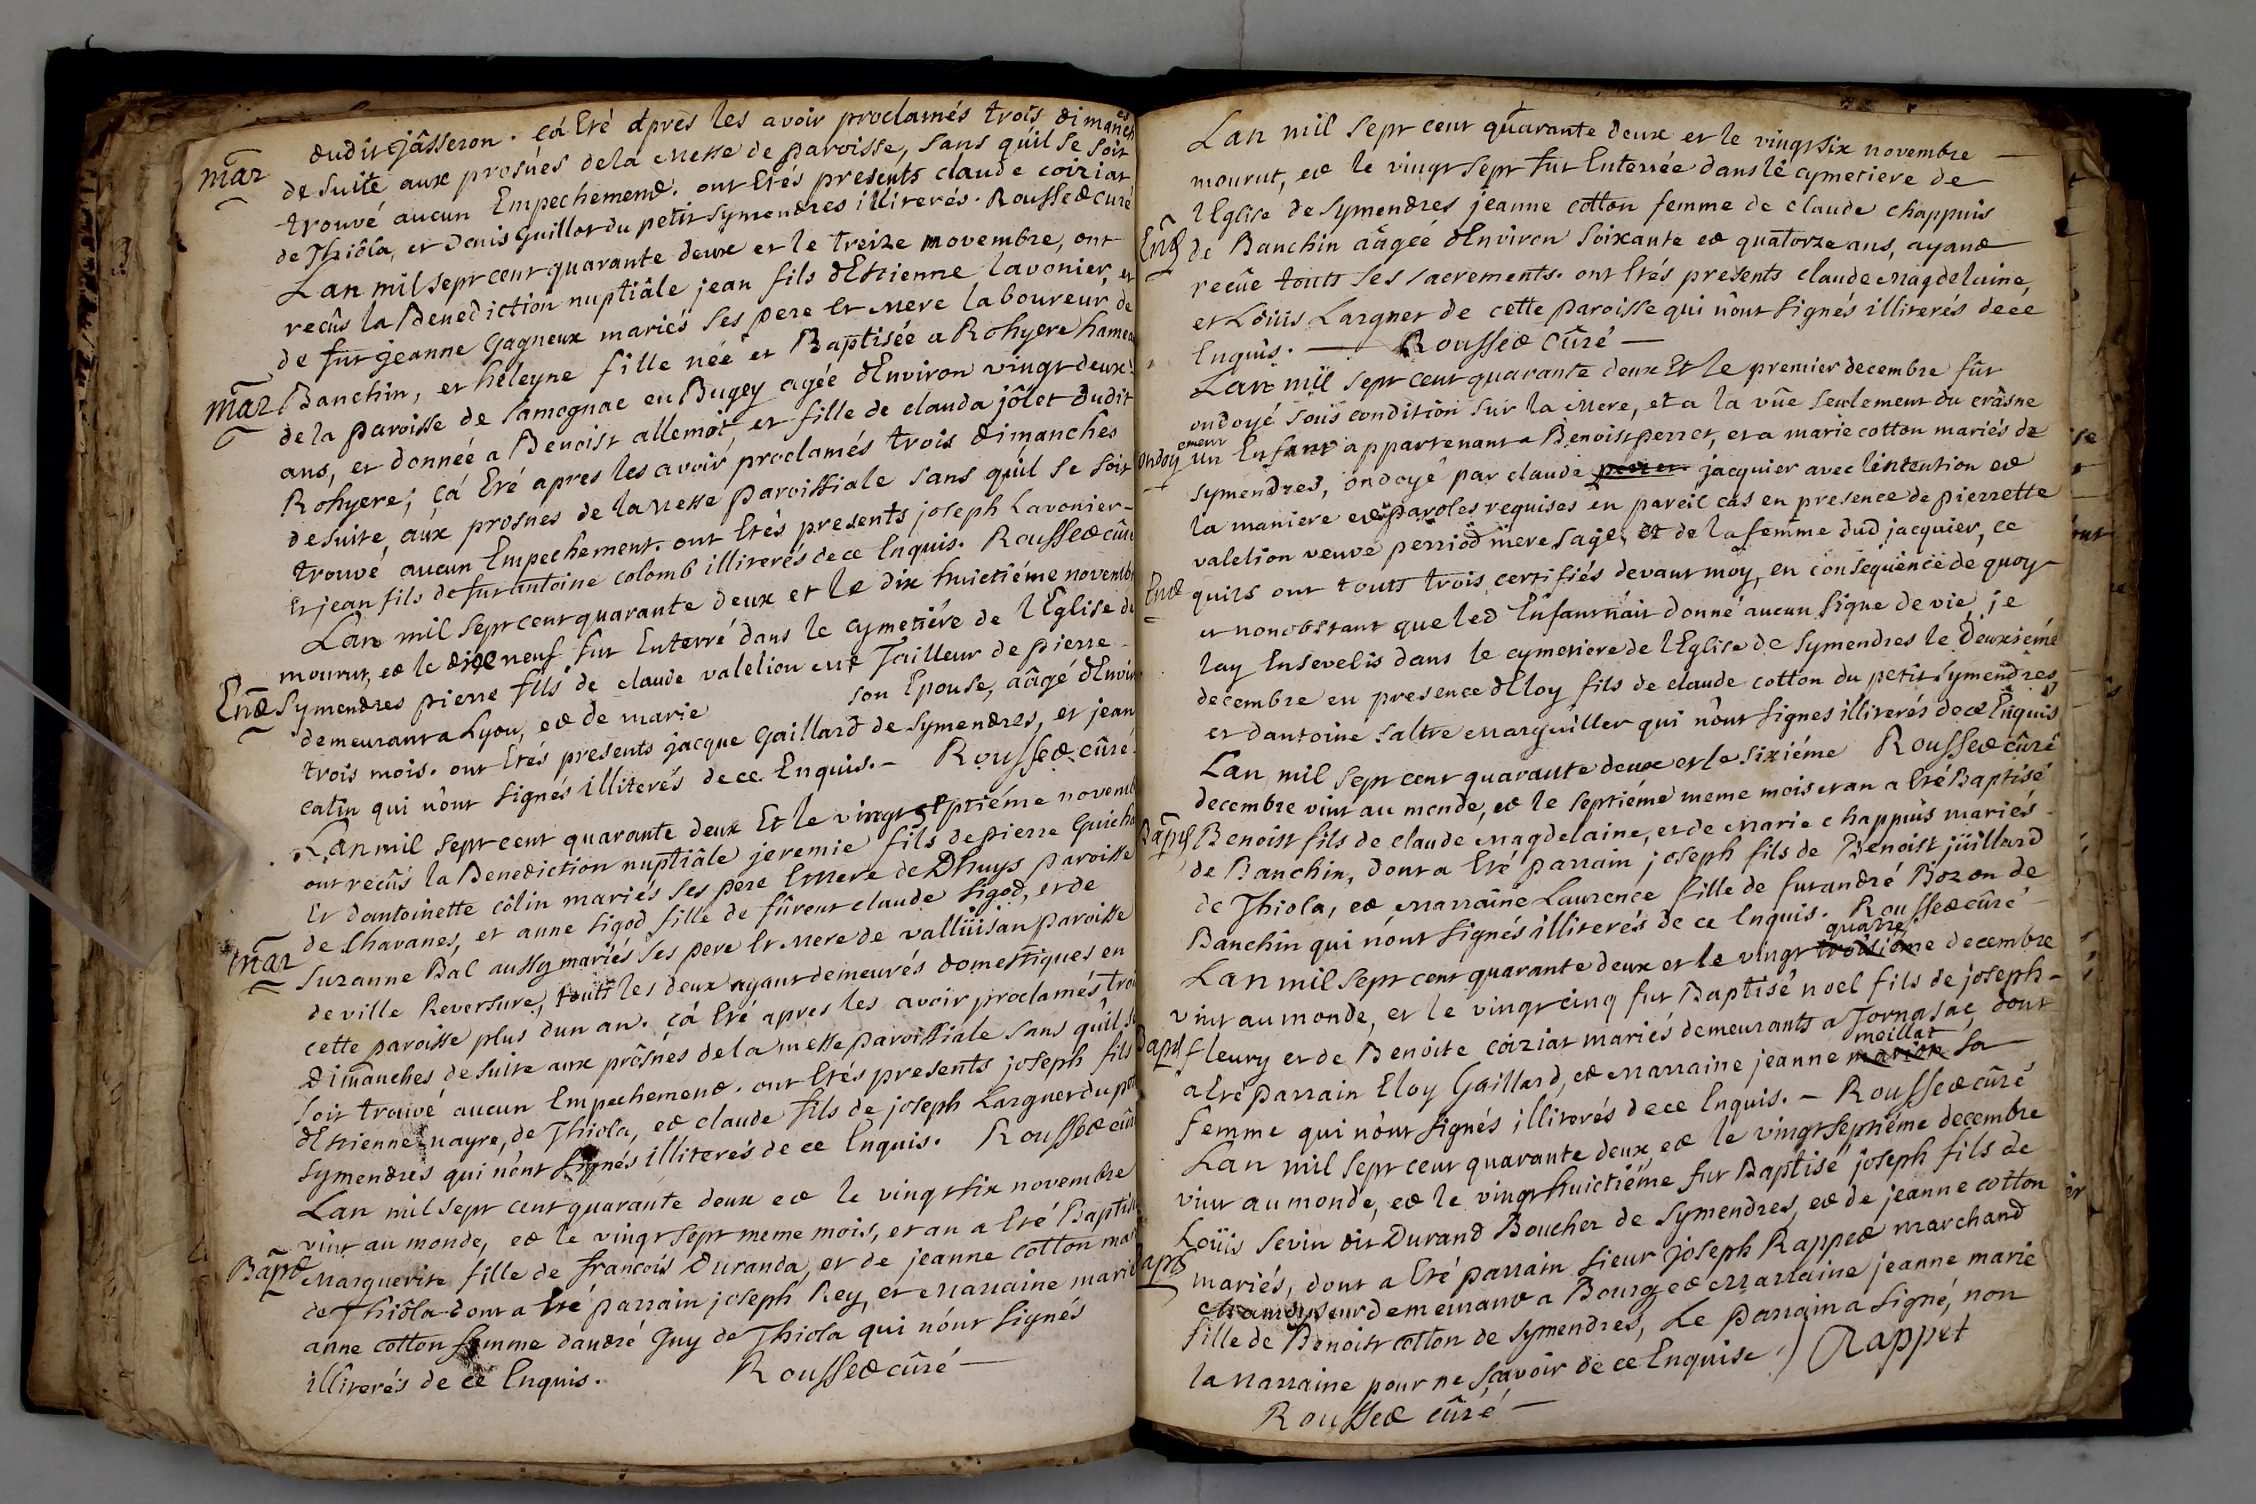 dudit jâsseron. çá Eté apres les avoir proclamés trois dimanches
mar
de suite aux prosnes de la Messe de paroisse, sans qûil se soit
trouvé aucun Empechement. ont Etés presents claude coiziat
de Thiôla, et denis Guillot du petit symendres illiterés. Rousset curé
Lan mil sept cent quarante deux et le treize novembre, ont
recûs la Benediction nuptiâle jean fils dEtienne lavonier, et
de fut jeanne Gagneux mariés ses pere Et Mere laboureur de
mar
Banchin, et heleyne fille née et Baptisée a Rohyere hameau
de la paroisse de samognac en Bugey agée dEnviron vingt deux
ans, et donnée a Benoist allemot, et fille de clauda jôlet dudit
Rohyere; çá Eté apres les avoir proclamés trois dimanches
de suite, aux prosnes de la Messe paroissiale sans qûil se soit
trouvé aucun Empechement. ont Etés presents joseph Lavonier
Et jean fils de fut antoine colomb illiterés de ce Enquis. Rousset cûré
Lan mil sept cent quarante deux et le dix huictiéme novembre
mourut, et le dixneuf fut Enterré dans le cymetiére de lEglise de
Ent
symendres pierre fils de claude valelion Me Tailleur de pierre
demeurant a Lyon, et de marie son Epouse, aâgé dEnviron
trois mois. ont Etés presents jacque Gaillard de symendres, et jean
catin qui n'ont signés illiterés de ce Enquis. - Rousset cûré
Lan mil sept cent quarante deux Et le vingt septiéme novembre
ont recûs la Benediction nuptiâle jeremie fils de pierre Guichon
Et dantoinette côlin mariés ses pere Et Mere de Dhuys paroisse
de Chavanes, et anne sigod fille de fûrent claude sigod, et de
mar
suzanne Bal aussy mariés ses pere Et Mere de vallüisan paroisse
de ville Reversure, touts les deux ayant demeurés domestiques en
cette paroisse plus dun an. çá Eté apres les avoir proclamés trois
dimanches de suite aux prôsnes de la messe paroissiale sans qûil se
soit trouvé aucun Empechement. ont Etés presents joseph fils
dEtienne nayre, de Thiola, et claude fils de joseph Larguet du petit
symendres qui n'ont signés illiterés de ce Enquis. Rousset cûré
Lan mil sept cent quarante deux et le vingt six novembre
vint au monde, et le vingt sept meme mois, et an a Eté Baptisée
Bapt
Marguerite fille de francois Duranda, et de jeanne cotton mariés
de Thiôla dont a Eté parrain joseph Rey, et Marraine marie
anne cotton femme dandré Guy de Thiola qui n'ont signés
illiterés de ce Enquis. Rousset cûré -
Lan mil sept cent quarante deux et le vingt six novembre -
mourut, et le vingt sept fut Enterrée dans le cymetiere de
lEglise de symendres jeanne cotton femme de claude chappuis
Ent
de Banchin aâgée dEnviron soixante et quatorze ans, ayant
recûe touts ses sacrements. ont Etés presents claude Magdelaine,
et Loüis Larguet de cette paroisse qui n'ont signés illiterés de ce
Enquis. - Rousset Cûré -
Lan mil sept cent quarante deux Et le premier decembre fût
ondoyé sous condition sur la Mere, et a la vûe seulement du crâsne
ondoyement
un Enfant appartenant a Benoist perret, et a marie cotton mariés de
symendres, ondoyé par claude jacquier avec lintention et
la maniere et paroles requises en pareil cas en presence de pierrette
valelion veuve perriod mere sage, et de la femme dud jacquier, ce
Ent
quils ont touts trois certifiés devant moy, en consequence de quoy
et nonobstant que led Enfant n'ait donné aucun signe de vie je
lay Ensevelis dans le cymetiere de lEglise de symendres le deuxiéme
decembre en presence dEloy fils de claude cotton du petit symendres,
et dantoine saltre Marguiller qui n'ont signes illiterés de ce Enquis
Rousset cûré
Lan mil sept cent quarante deux et le sixiéme
decembre vint au monde, et le septiéme meme mois et an a Eté Baptisé
Bapt
Benoist fils de claude Magdelaine, et de Marie chappuis mariés
de Banchin, dont a Eté parrain joseph fils de Benoist jüillard
de Thiola, et Marraine Laurence fille de fut andré Bozon de
Banchin qui n'ont signés illiterés de ce Enquis. Rousset cûré -
Lan mil sept cent quarante deux et le vingt troisiéme quatre decembre
vint au monde, et le vingt cinq fut Baptisé noel fils de joseph
Bapt
fleury et de Benoite coiziat mariés demeurants a Tornasac dont
a Eté parrain Eloy Gaillard, et Marraine jeanne marion meillat sa
femme qui n'ont signés illiterés de ce Enquis. - Rousset cûré
Lan mil sept cent quarante deux, et le vingt septiéme decembre
vint au monde, et le vingt huictiéme fut Baptisé joseph fils de
Loüis sevin dit Durand Boucher de symendres, et de jeanne cotton
Bapt
mariés, dont a Eté parrain sieur joseph Rappet marchand
demeurant a Bourg et Marraine jeanne marie
fille de Benoist cotton de symendres, Le parrain a signé, non
la Marraine pour ne sçavoir de ce Enquise.) Rappet
Rousset cûré -